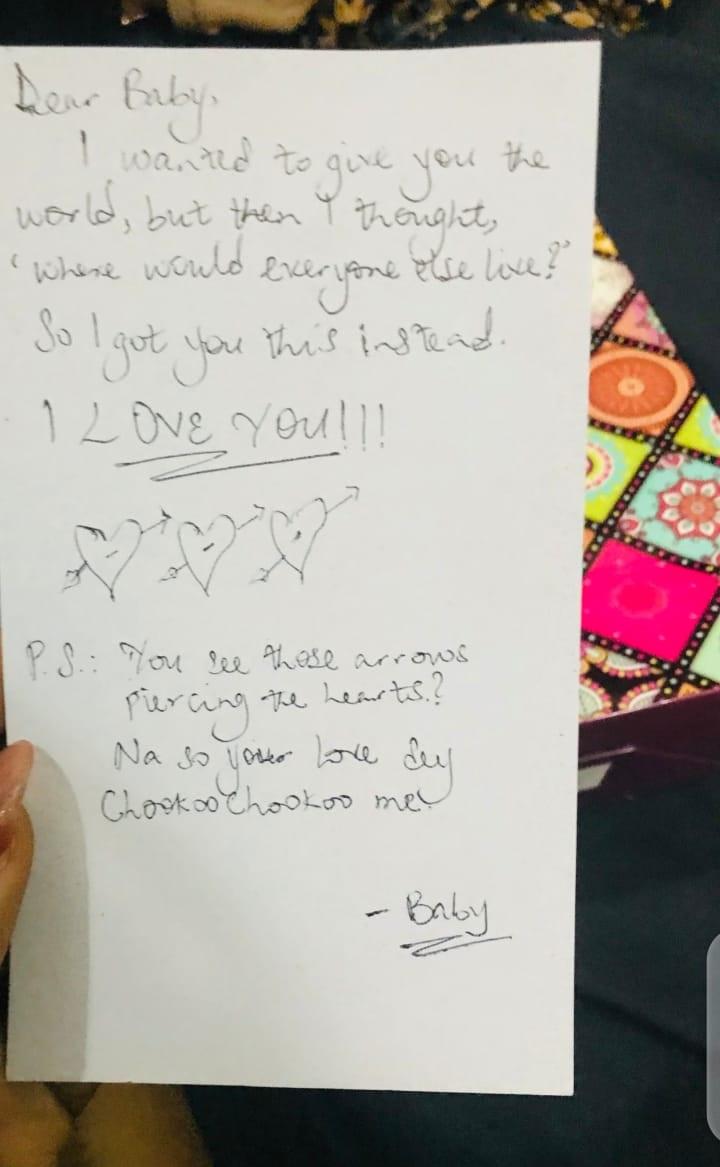 Dear Baby,
I wanted to give you the
world, but then I thought,
'where would everyone else live?'
So I got you this instead.
I LOVE YOU!!!
P.S.: You see those arrows
piercing the hearts?
Na so your love dey
Chookoo Chookoo me!
- Baby